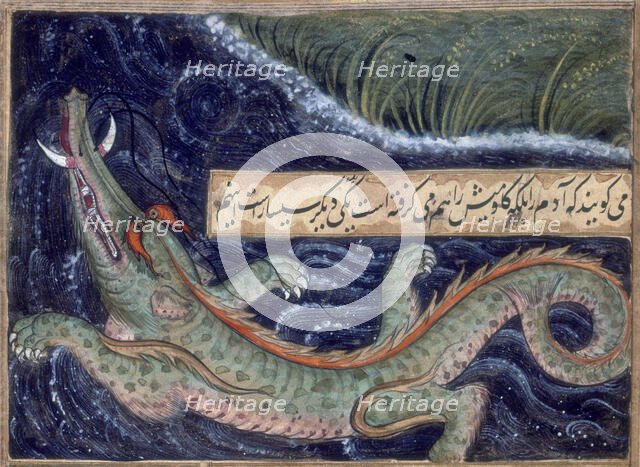 Heritage Heritage
می کویند که آدم را بلکه کاومیش را هم می کرفته است یکی دیکر سیسار است اینهم
Heritage Heritage
Heritage Heritage